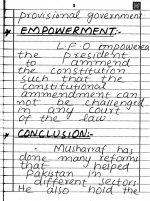 provisional government
* EMPOWERMENT:-
L.F.O empowered
the president
to ammend
the constitution
such that the
constitutional
ammendment can
not be challenged
in any court
of the law.
* CONCLUSION:-
Musharraf has
done many reforms
that helped
Pakistan in
different sectors.
He also hold the